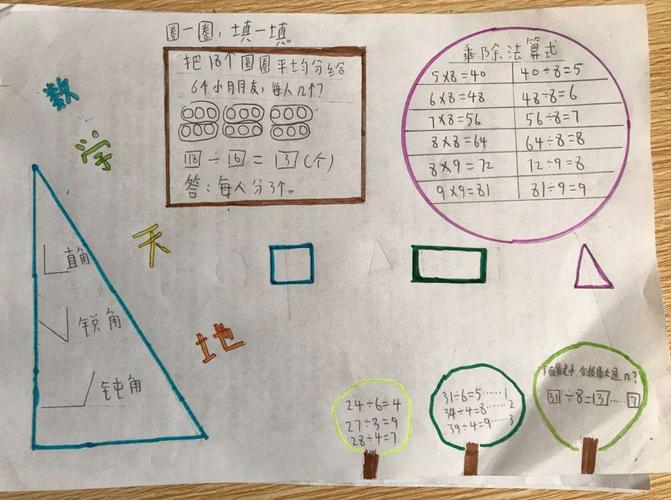 数学天地
圈一圈，填一填。
把18个圆圈平均分给
6个小朋友，每人几个？
18÷6=3(个)
答：每人分3个。
乘除法算式
5×8=40 40÷8=5
6×8=48 48÷8=6
7×8=56 56÷8=7
8×8=64 64÷8=8
8×9=72 72÷9=8
9×9=81 81÷9=9
直角
锐角
钝角
24÷6=4
27÷3=9
28÷4=7
31÷6=5……1
34÷4=8……2
39÷4=9……3
31÷8=3……7